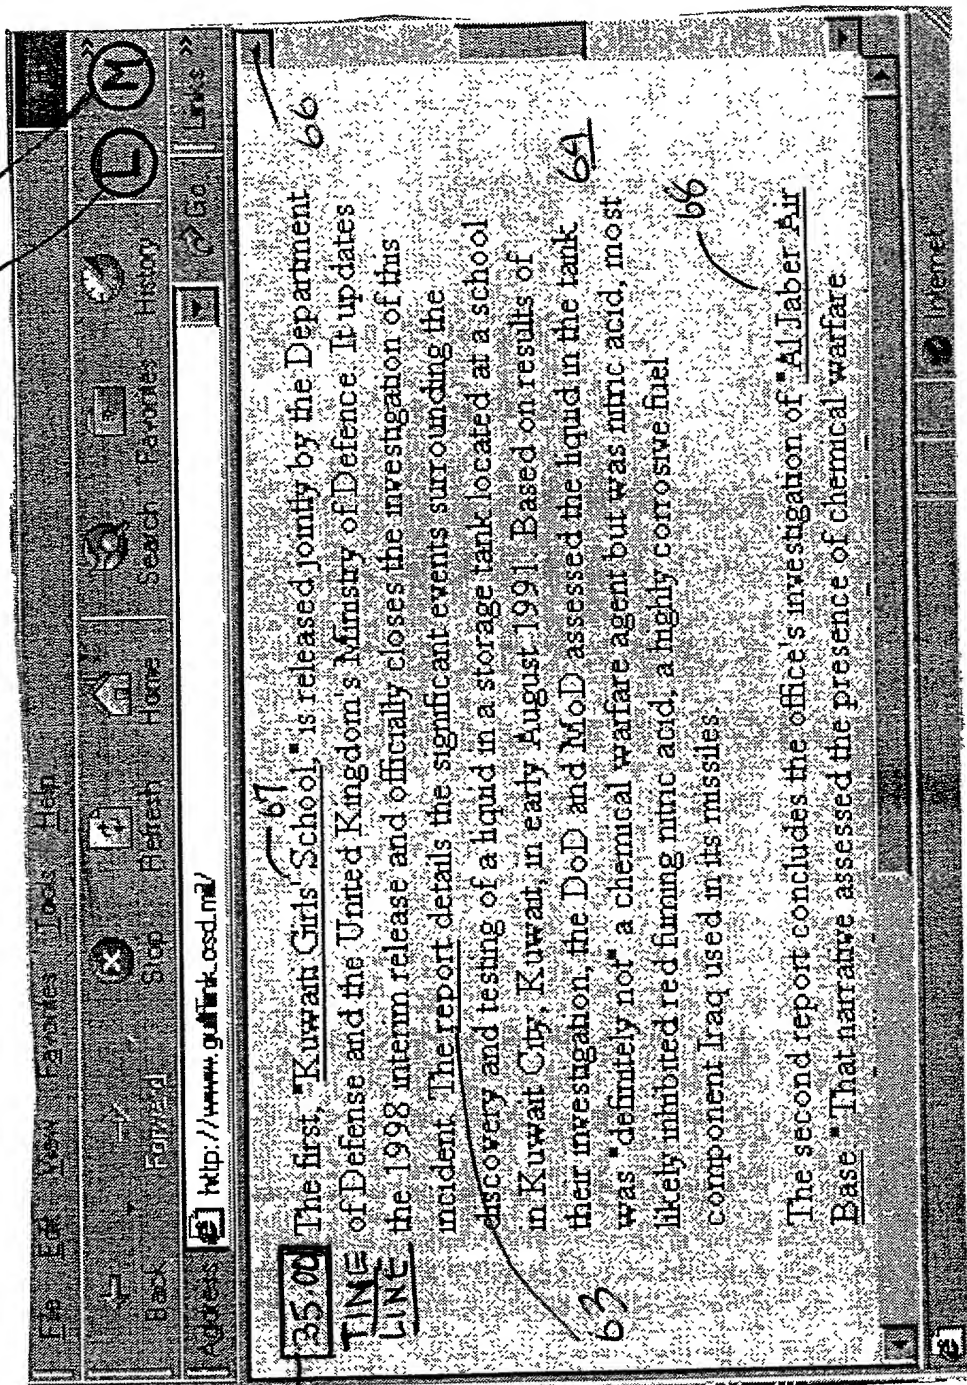 File Edit View Favorites Tools Help
Back Forward Stop Refresh Home Search Favorites History L M
Address http://www.gulflink.osd.mil/ Go Links
35:00 The first, "Kuwaiti Girls' School," is released jointly by the Department
TINE LINE
of Defense and the United Kingdom's Ministry of Defence. It updates
the 1998 interim release and officially closes the investigation of this
incident. The report details the significant events surrounding the
discovery and testing of a liquid in a storage tank located at a school
in Kuwait City, Kuwait, in early August 1991. Based on results of
their investigation, the DoD and MoD assessed the liquid in the tank
was "definitely not" a chemical warfare agent but was nitric acid, most
likely inhibited red fuming nitric acid, a highly corrosive fuel
component Iraq used in its missiles.
The second report concludes the office's investigation of "Al Jaber Air
Base." That narrative assessed the presence of chemical warfare
67
66
64
66
63
Internet